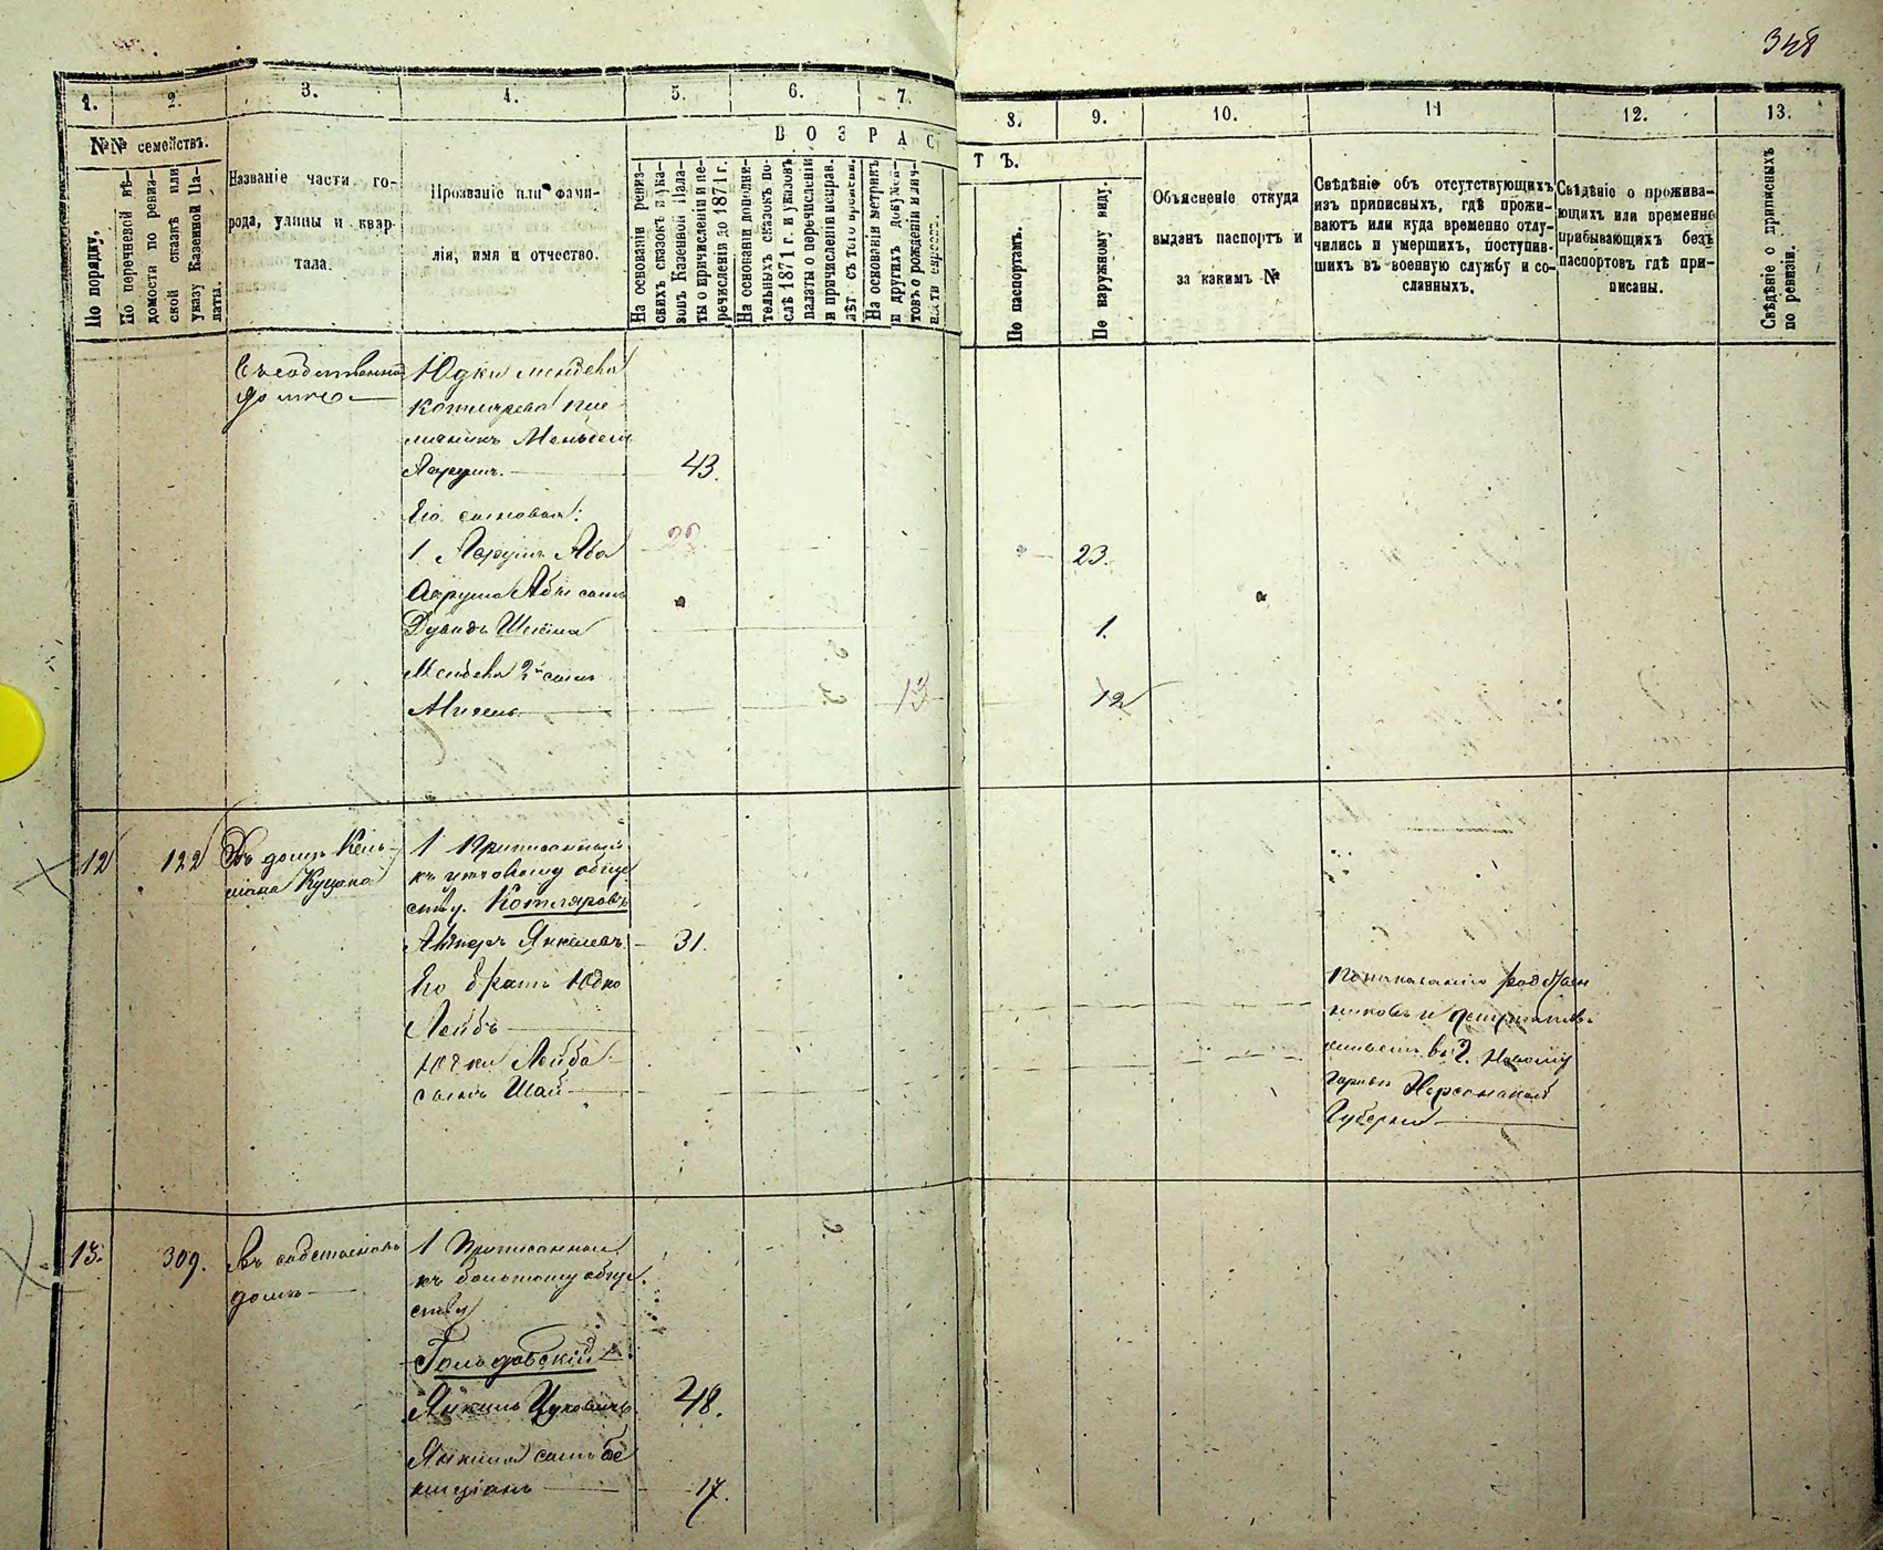 348
1.
2.
3.
4.
5.
6.
7.
8.
9.
10.
11
12.
13.
№№ семействъ.
ВОЗРАС
ТЪ.
По порядку.
По перечневой вѣ-
домости по ревиз-
ской сказкѣ или
указу Казенной Па-
латы.
Названіе части го-
рода, улицы и квар-
тала.
Прозваніе или фами-
лія, имя и отчество.
На основаніи ревиз-
скихъ сказокъ и ука-
зовъ Казенной Пала-
ты о причисленіи и пе-
речисленіи до 1871 г.
На основаніи дополни-
тельныхъ сказокъ по-
слѣ 1871 г. и указовъ
палаты о перечисленіи
и причисленіи исправ.
лѣт. съ того времени.
На основаніи метрикъ
и другихъ докумен-
товъ о рожденіи и лич-
ности евреевъ.
По паспортамъ.
По наружному виду.
Объясненіе откуда
выданъ паспортъ и
за какимъ №
Свѣдѣніе объ отсутствующихъ
изъ приписныхъ, гдѣ прожи-
ваютъ или куда временно отлу-
чились и умершихъ, поступив-
шихъ въ военную службу и со-
сланныхъ.
Свѣдѣніе о прожива-
ющихъ или временно
прибывающихъ безъ
паспортовъ гдѣ при-
писаны.
Свѣдѣніе о приписныхъ
по ревизіи.
Въ собственном
домѣ
Юдки Менделя
Котлярева пле
мяникъ Мендель
Аарумъ. 43.
Его сыновья:
1. Аарумъ Аба 22. 23.
Аарума Абы сынъ
Дувидъ Шлёма 1.
Менделя 2й сынъ
Михель 13 12
12 122 Въ домѣ Кель-
мана Куцока
1 Приписанный
къ мѣстному обще
ству. Котляровъ
Янкелевъ 31.
Его братъ Юдко
Лейбъ
Юдки Лейба
сынъ Шай
По показанію
и депутатовъ
въ г. Новому
Херсонской
Губерніи
13. 309. Въ собственном
домѣ
1 Приписанный
къ большому обще
ству
Гольдовскій
Янкель 48.
Янкеля сынъ Бе
17.